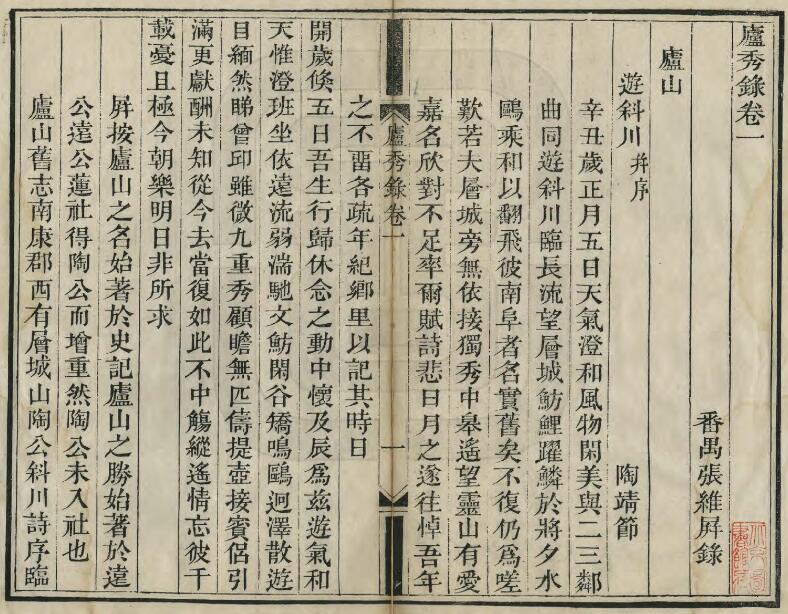 廬秀錄卷一
番禺張維屛錄
廬山
遊斜川幷序
陶靖節
辛丑歲正月五日天氣澄和風物閑美與二三鄰
曲同遊斜川臨長流望層城魴鯉躍鱗於將夕水
鷗乘和以翻飛彼南阜者名實舊矣不復仍爲嗟
歎若大層城旁無依接獨秀中皋遙望靈山有愛
嘉名欣對不足率爾賦詩悲日月之遂往悼吾年
之不畱各疏年紀鄉里以記其時日
開歲倏五日吾生行歸休念之動中懷及辰爲茲遊氣和
天惟澄班坐依遠流弱湍馳文魴閑谷矯鳴鷗迥澤散遊
目緬然睇曾邱雖微九重秀顧瞻無匹儔提壺接賓侶引
滿更獻酬未知從今去當復如此不中觴縱遙情忘彼千
載憂且極今朝樂明日非所求
屛按廬山之名始著於史記廬山之勝始著於遠
公遠公蓮社得陶公而增重然陶公未入社也
廬山舊志南康郡西有層城山陶公斜川詩序臨
廬秀錄卷一
一